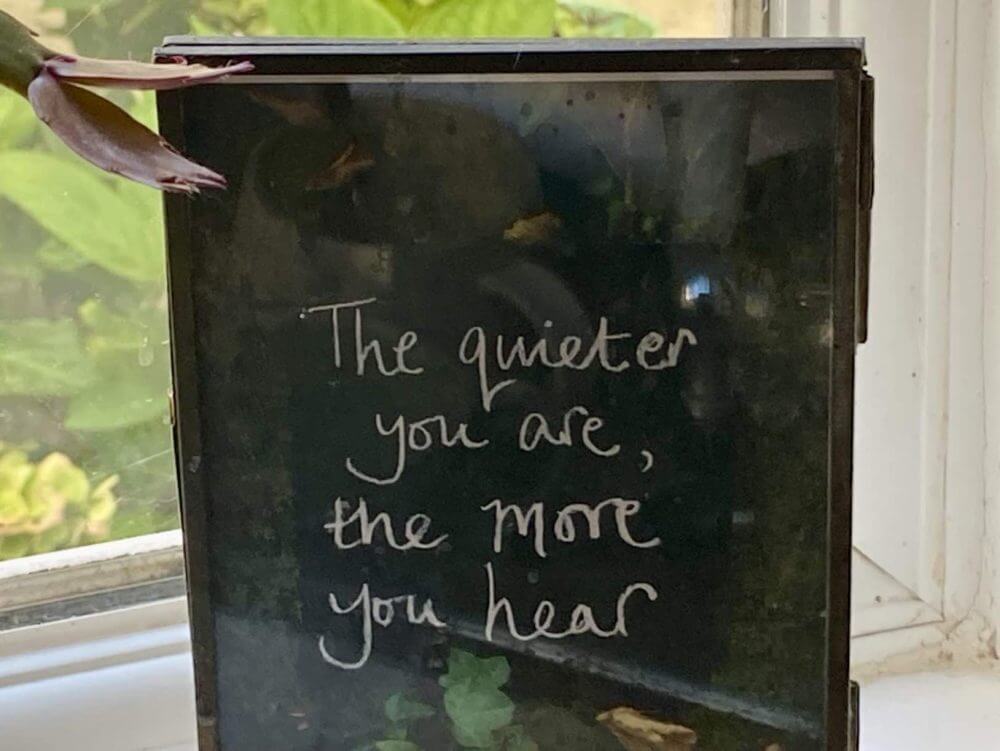 The quieter
you are,
the more
you hear